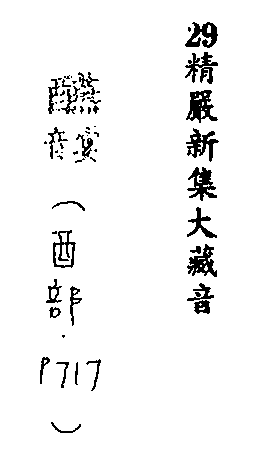 29精嚴新集大藏音
醼音宴（酉部．P717）